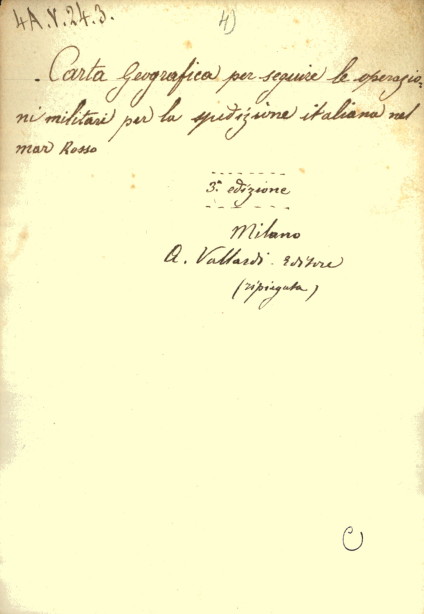 4A.V.24.3.
4)
. Carta Geografica per seguire le operazio-
ni militari per la spedizione italiana nel
mar Rosso
3ª edizione
Milano
A. Vallardi - Editore
(ripiegata)
C